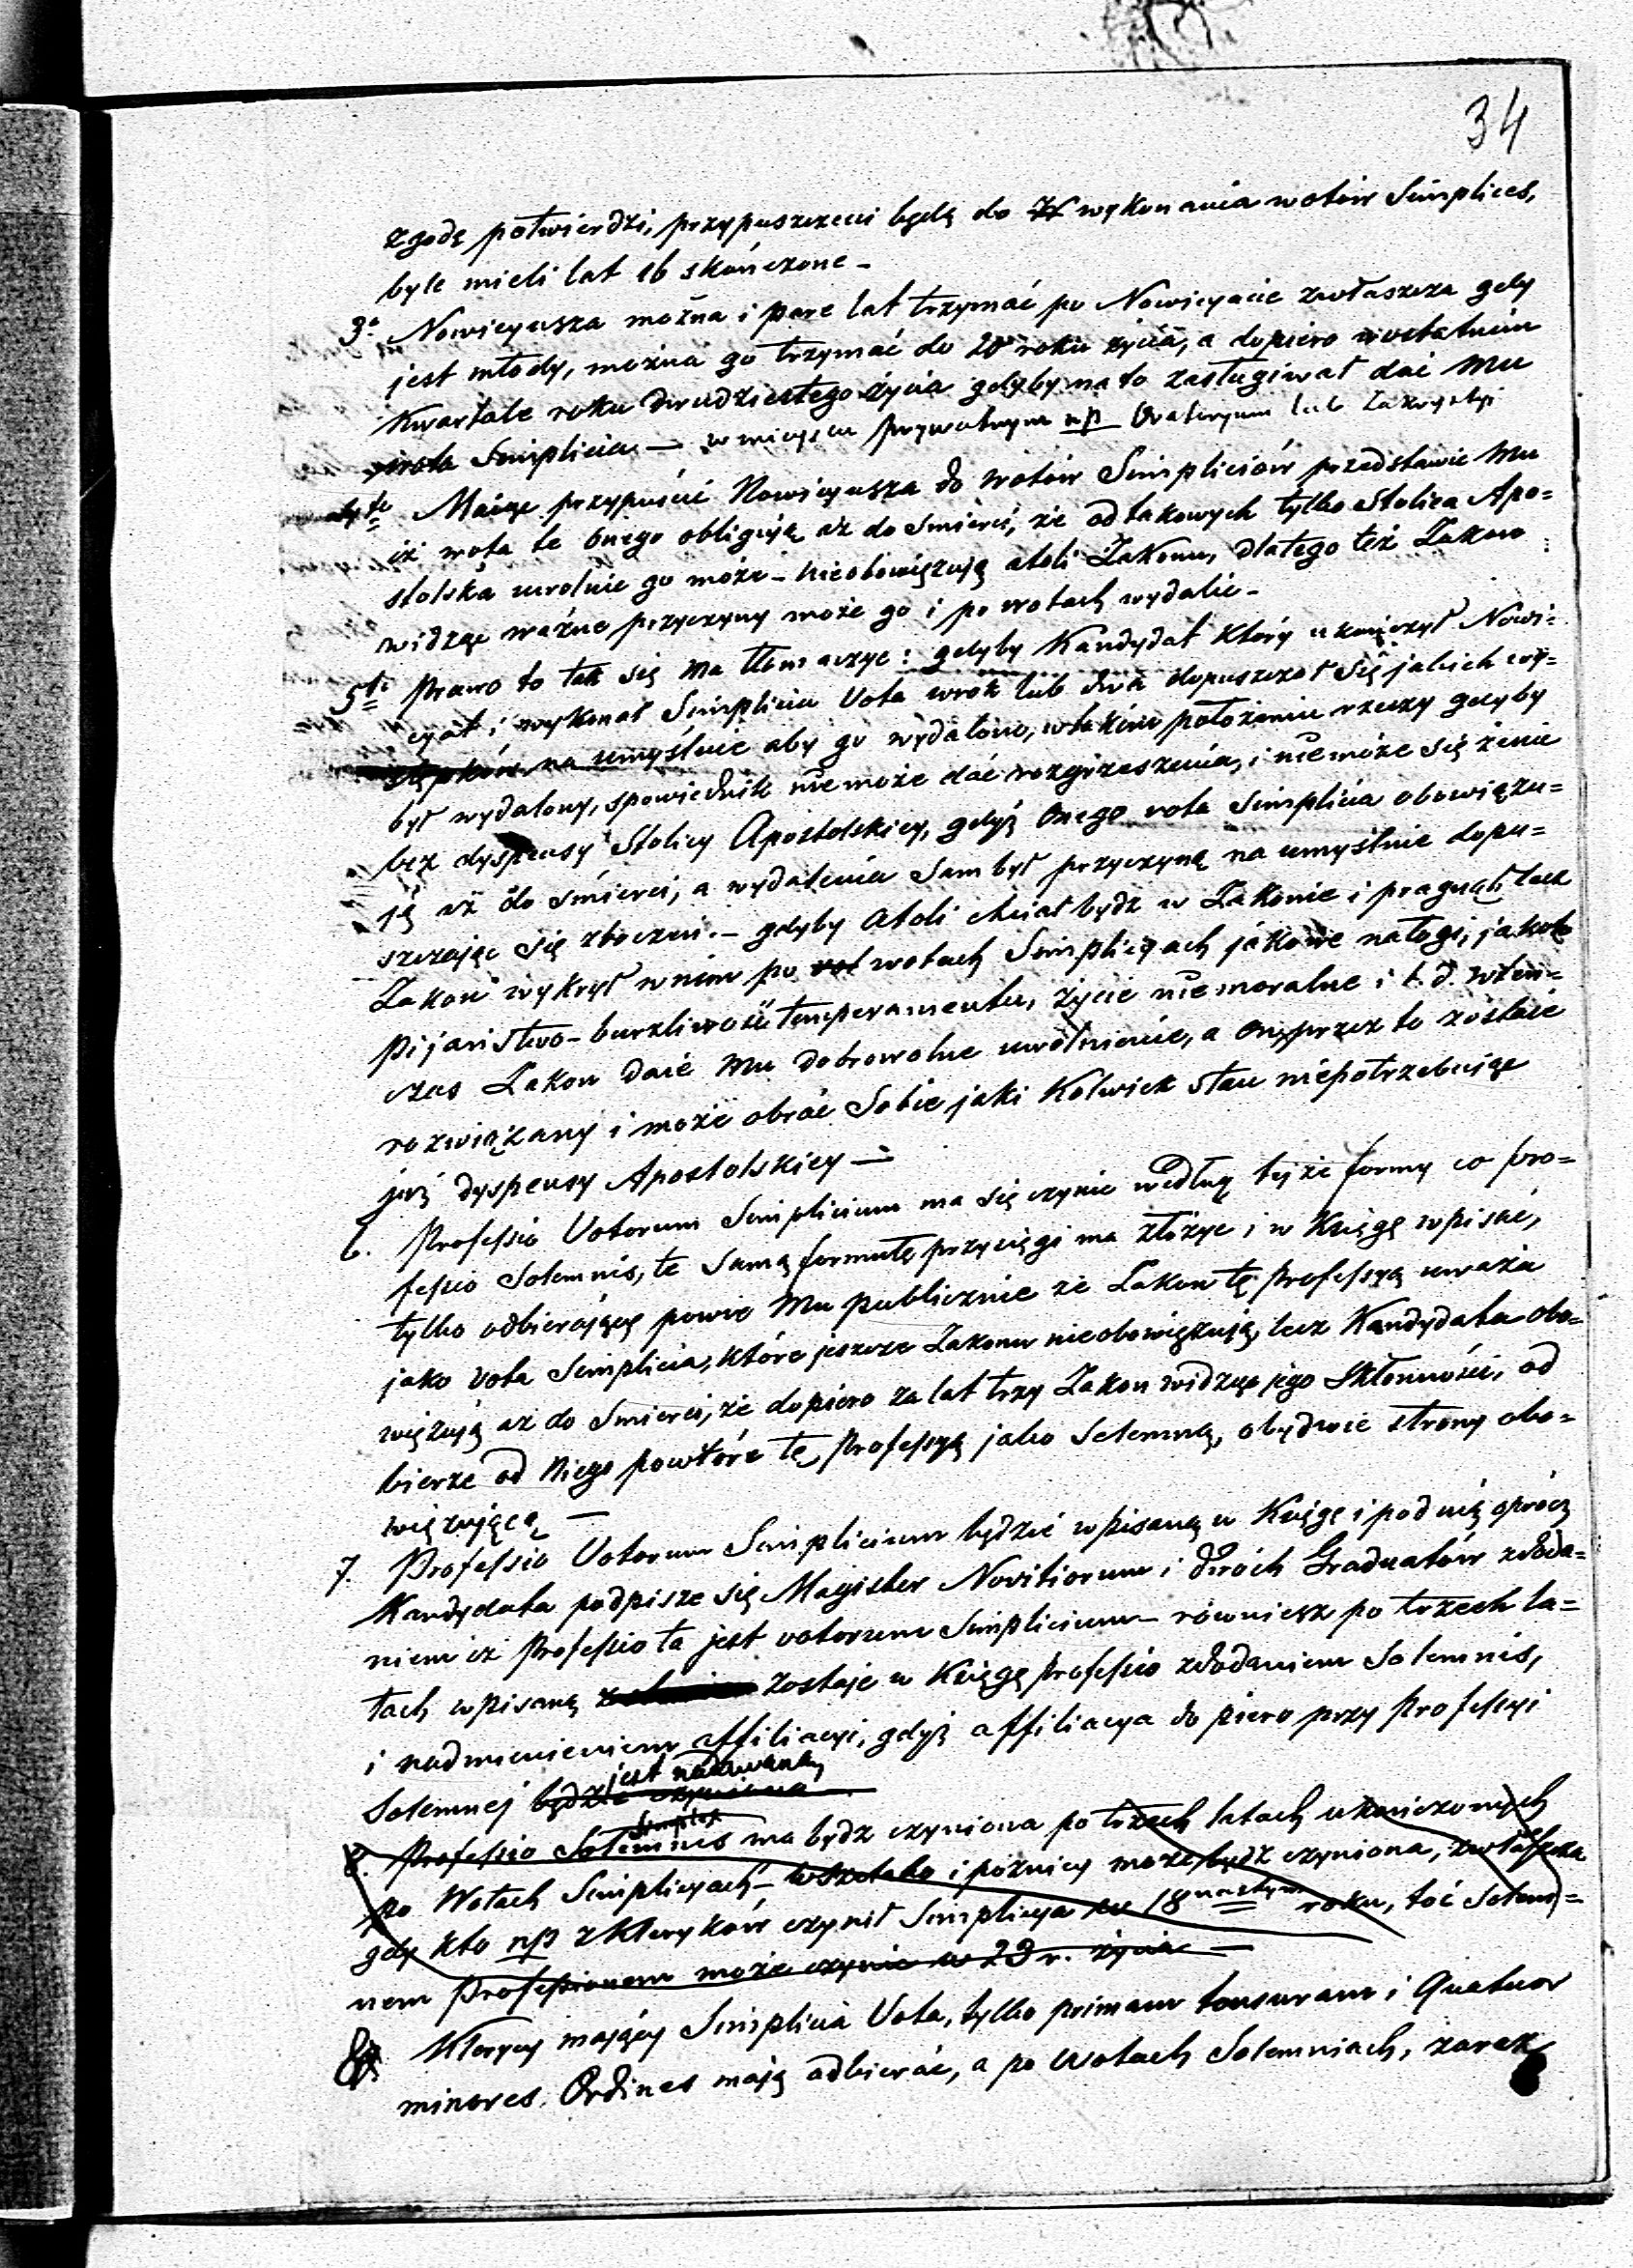 34
zgodę potwierdzi, przypuszczeni będą do wykonania wotów Simplices,
byle mieli lat 16 skończone –
3° Nowicyusza można i parę lat trzymać po Nowicyacie zwłaszcza gdy
jest młody, można go trzymać do 20 roku życia, a dopiero w ostatnim
Kwartale roku dwudziestego życia gdyby na to zasługiwał dać Mu
wota Simplicia – w miejscu prywatnym np Oratoryum lub Zakrystyi
4te Mając przypuścić Nowicyusza do wotów Simpliciów przedstawić Mu
iż wota te Onego obligują aż do śmierci, że od takowych tylko Stolica Apo=
stolska uwolnić go może – nieobowiązują atoli Zakonu, dlatego też Zakon
widząc ważne przyczyny może go i po wotach wydalić –
5te Prawo to tak się ma tłómaczyć: gdyby Kandydat który ukończył Nowi=
cyat i wykonał Simplicia Vota w rok lub dwa dopuszczał się jakich wy=
stępków na umyślnie aby go wydalono, w takim położeniu rzeczy gdyby
był wydalony, spowiednik nie może dać rozgrzeszenia, i nie może się żenić
bez dyspensy Stolicy Apostolskiey, gdyż Onego vota simplicia obowiązu=
ją aż do śmierci, a wydalenia Sam był przyczyną na umyślnie dopu=
szczając się zboczeń. – gdyby atoli chciał bydź w Zakonie i pragnął lecz
Zakon wykrył w nim po wotach Simplicyach jakowe nałogi, jakoto
pijaństwo – burzliwość temperamentu, życie niemoralne i t. d. wten=
czas Zakon daie Mu dobrowolne uwolnienie, a On przez to zostaie
rozwiązany i może obrać Sobie jaki Kolwiek stan niepotrzebując
już dyspensy Apostolskiey –
6. Professio Votorum Simplicium ma się czynić według tejże formy co pro=
fessio Solemnis, te Samą formułę przysięgi ma złożyć i w Księgę wpisać,
tylko odbierający powie Mu publicznie że Zakon tę professyą uważa
jako vota Simplicia, które jeszcze Zakonu nieobowiązują, lecz Kandydata obo=
wiązują aż do śmierci, że dopiero za lat trzy Zakon widząc jego Skłonności, od
bierze od Niego powtóre tę professyą jako Solemną, obydwie strony obo=
wiązującą –
7. Professio Votorum Simplicium będzie wpisaną w Księgę i pod nią oprócz
Kandydata podpisze się Magister Novitiorum i dwóch Graduatów z doda=
niem iż Professio ta jest votorum Simplicium – równiesz po trzech la=
tach wpisaną zostaje w Księgę professio z dodaniem Solemnis,
i nadmienieniem affiliacyi, gdyż affiliacya do piero przy professyi
jest nadawaną
Solemnej będzie czyniona
Simplex
8. Professio Solemnes ma bydź czyniona po trzech latach ukończonych
po Wotach Simplicyach – wszelako i pozniey może bydź czyniona, zwłaszcza
gdy kto np z Kleryków czynił Simplicya w 18nastym roku, toć Solem=
nem Professionem może czynić w 23 r. życia –
8 Klerycy mający Simplicia Vota, tylko primam tonsuram i Quatuor
minores Ordines mają odbierać, a po wotach Solemniach, zaraz